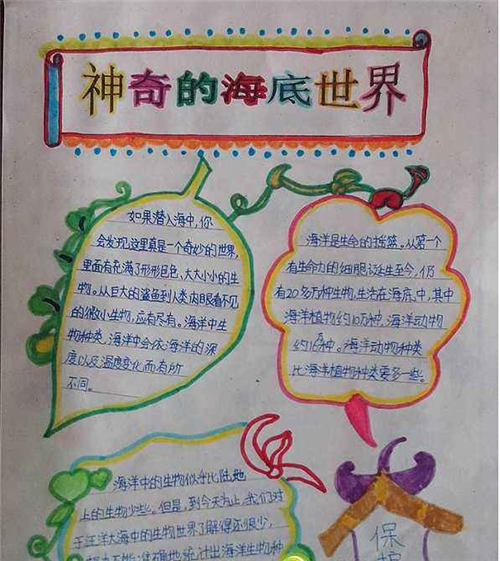 神奇的海底世界
如果潜入海中,你
会发现这里真是一个奇妙的世界,
里面有充满了形形色色,大大小小的生
物。从巨大的鲨鱼到人类肉眼看不见
的微小生物,应有尽有。海洋中生
物种类,海洋中会依海洋的深
度以及温度变化而有所
不同。
海洋是生命的摇篮。从第一个
有生命力的细胞诞生至今,仍
有20多万种生物生活在海底、中,其中
海洋植物约10万种,海洋动物
约16万种。海洋动物种类
比海洋植物种类要多一些。
海洋中的生物似乎比陆地
上的生物少些。但是,到今天为止,我们对
于汪洋大海中的生物世界了解得还很少,
准确地统计出海洋生物种
保
护